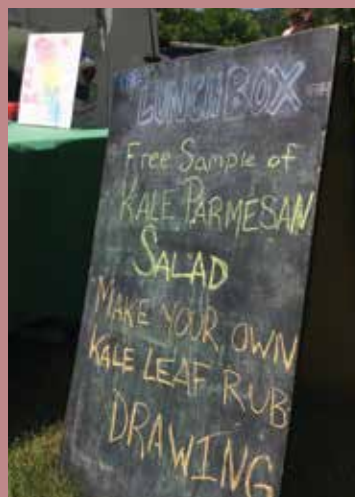 LUNCHBOX
Free Sample of
KALE PARMESAN
SALAD
MAKE YOUR OWN
KALE LEAF RUB
DRAWING